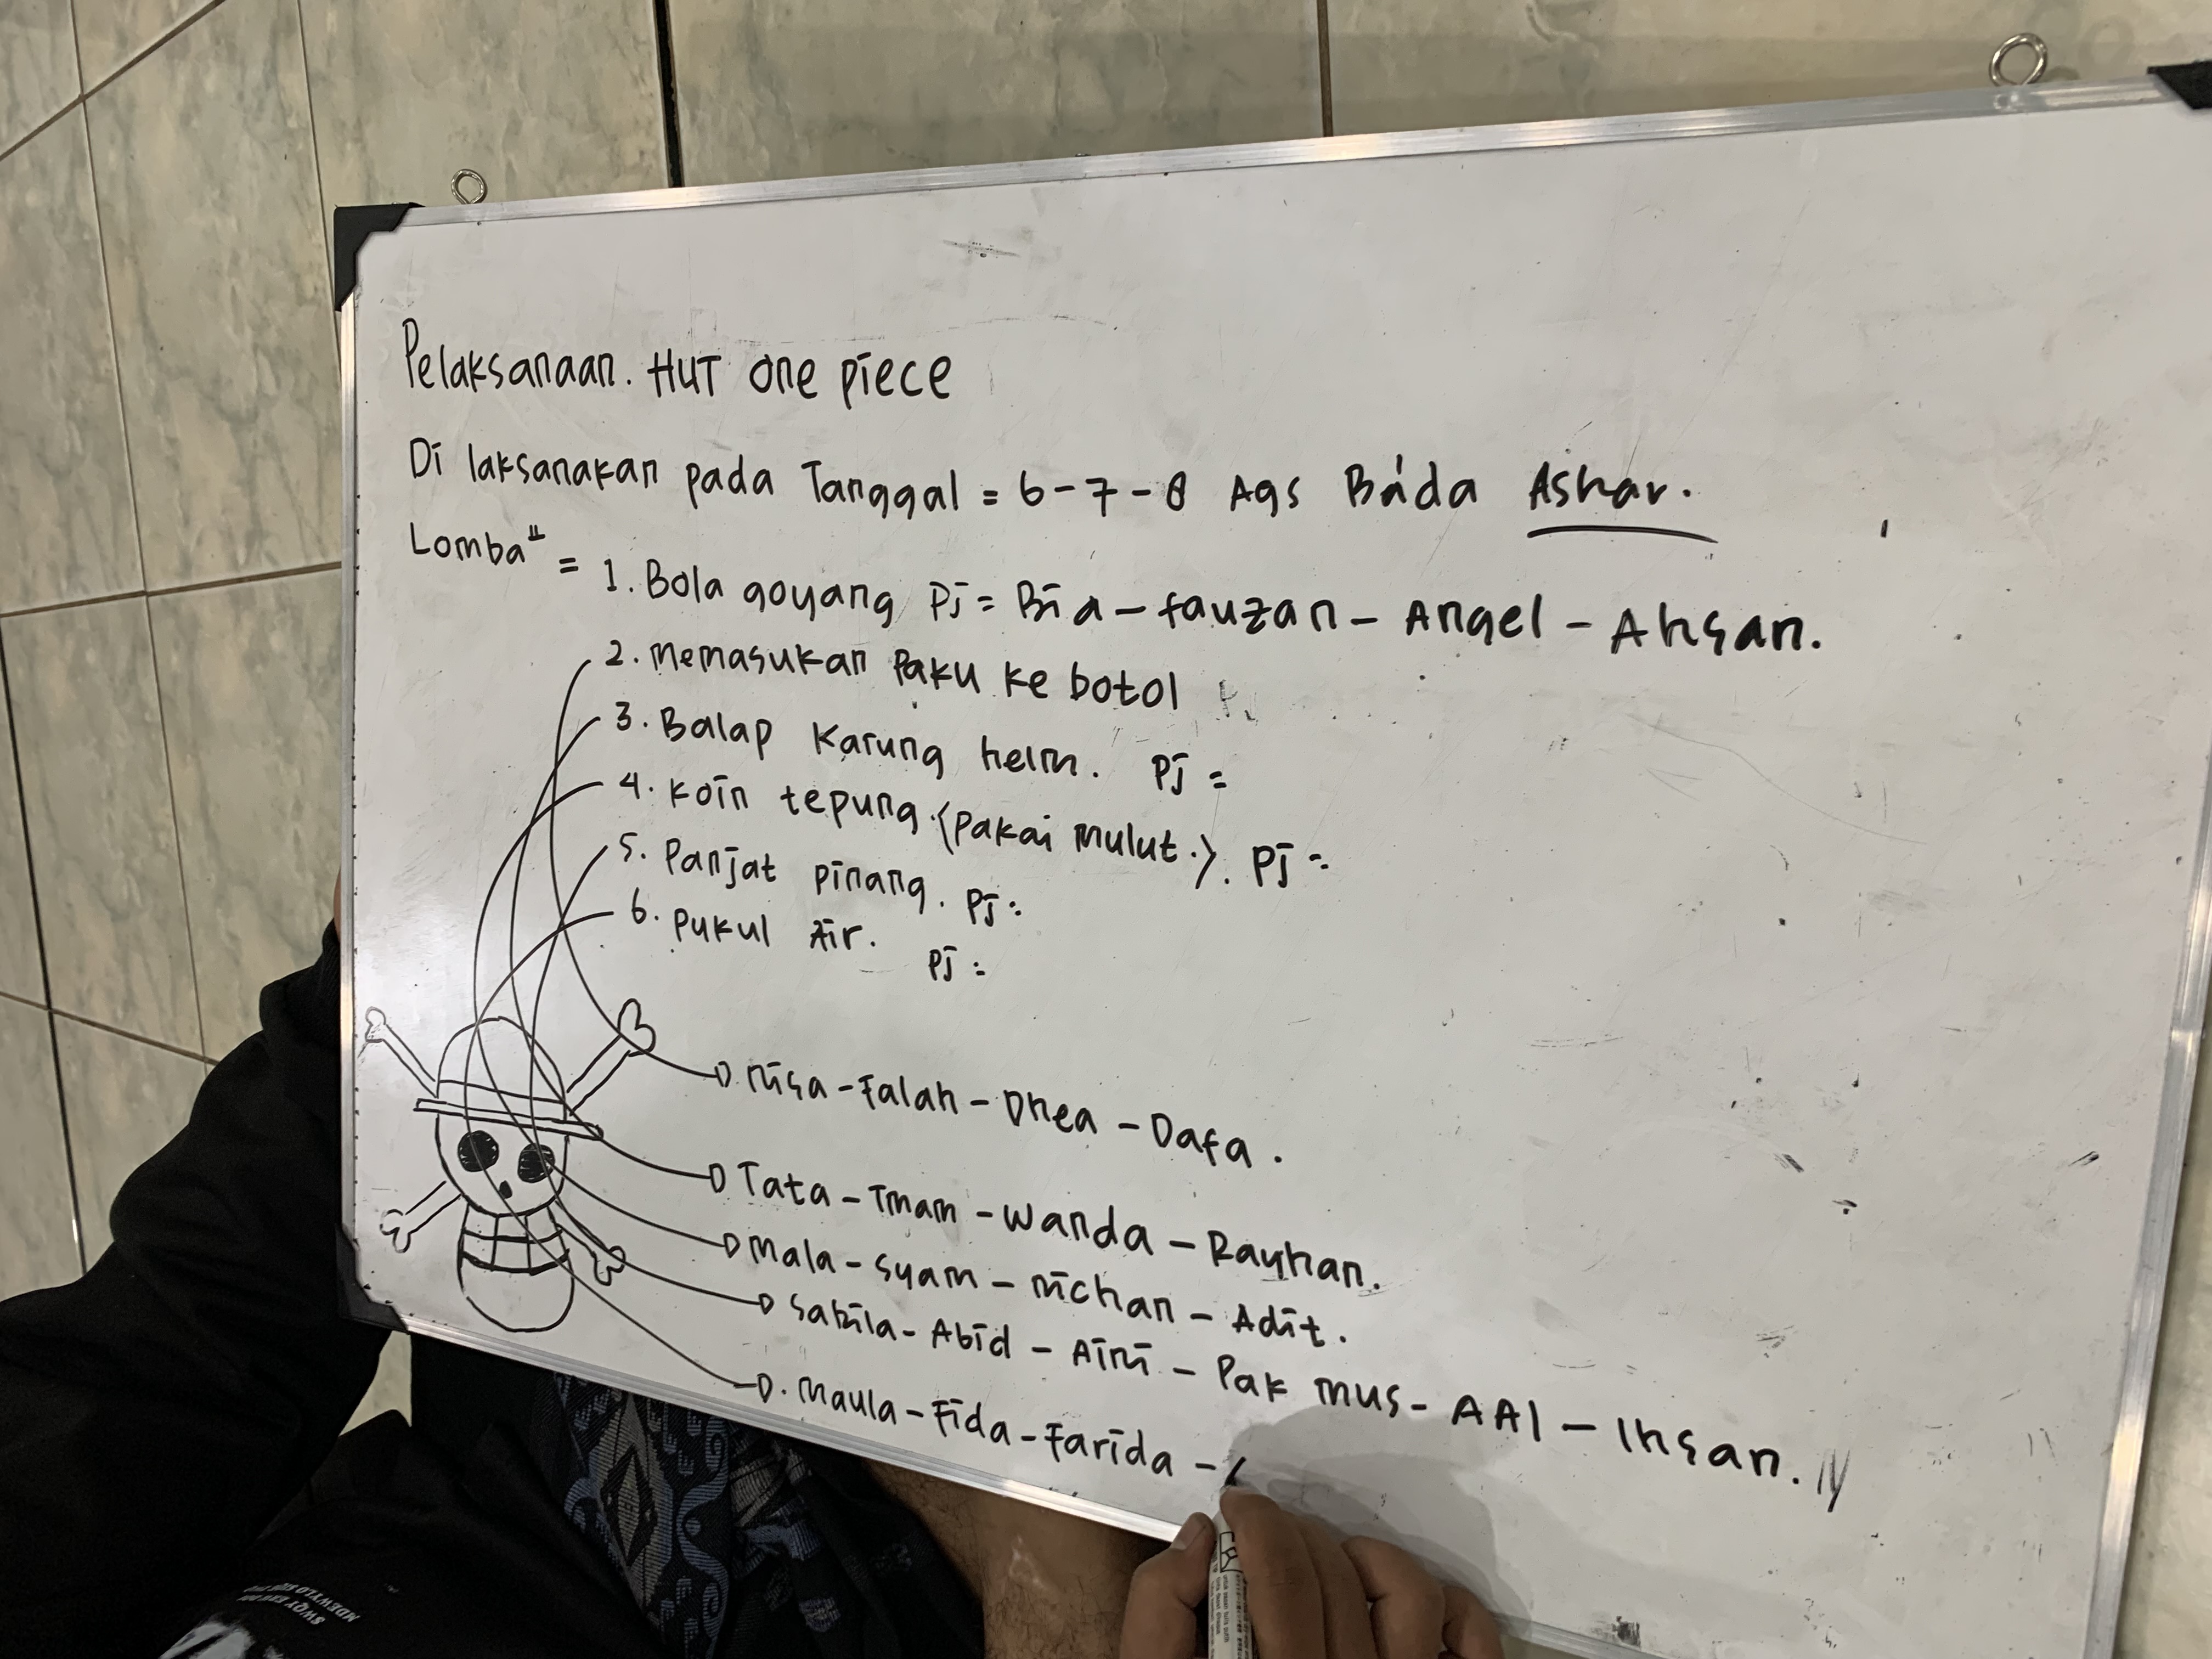 Pelaksanaan. HUT One piece
Di laksanakan pada Tanggal = 6-7-8 Ags Bá'da Ashar.
Lomba" =
1. Bola goyang Pj = Bia - fauzan - Angel - Ahsan.
2. Memasukan Paku ke botol
3. Balap Karung helm. Pj =
4. Koin tepung. (Pakai Mulut.). Pj =
5. Panjat pinang. Pj :
6. Pukul Air. Pj :
Nisa - Falah - Dhea - Dafa.
Tata - Imam - Wanda - Rayhan.
Mala - Syam - Nichan - Adit.
Sabila - Abid - Aini - Pak mus - AAl - Ihsan.
Maula - Fida - Farida -